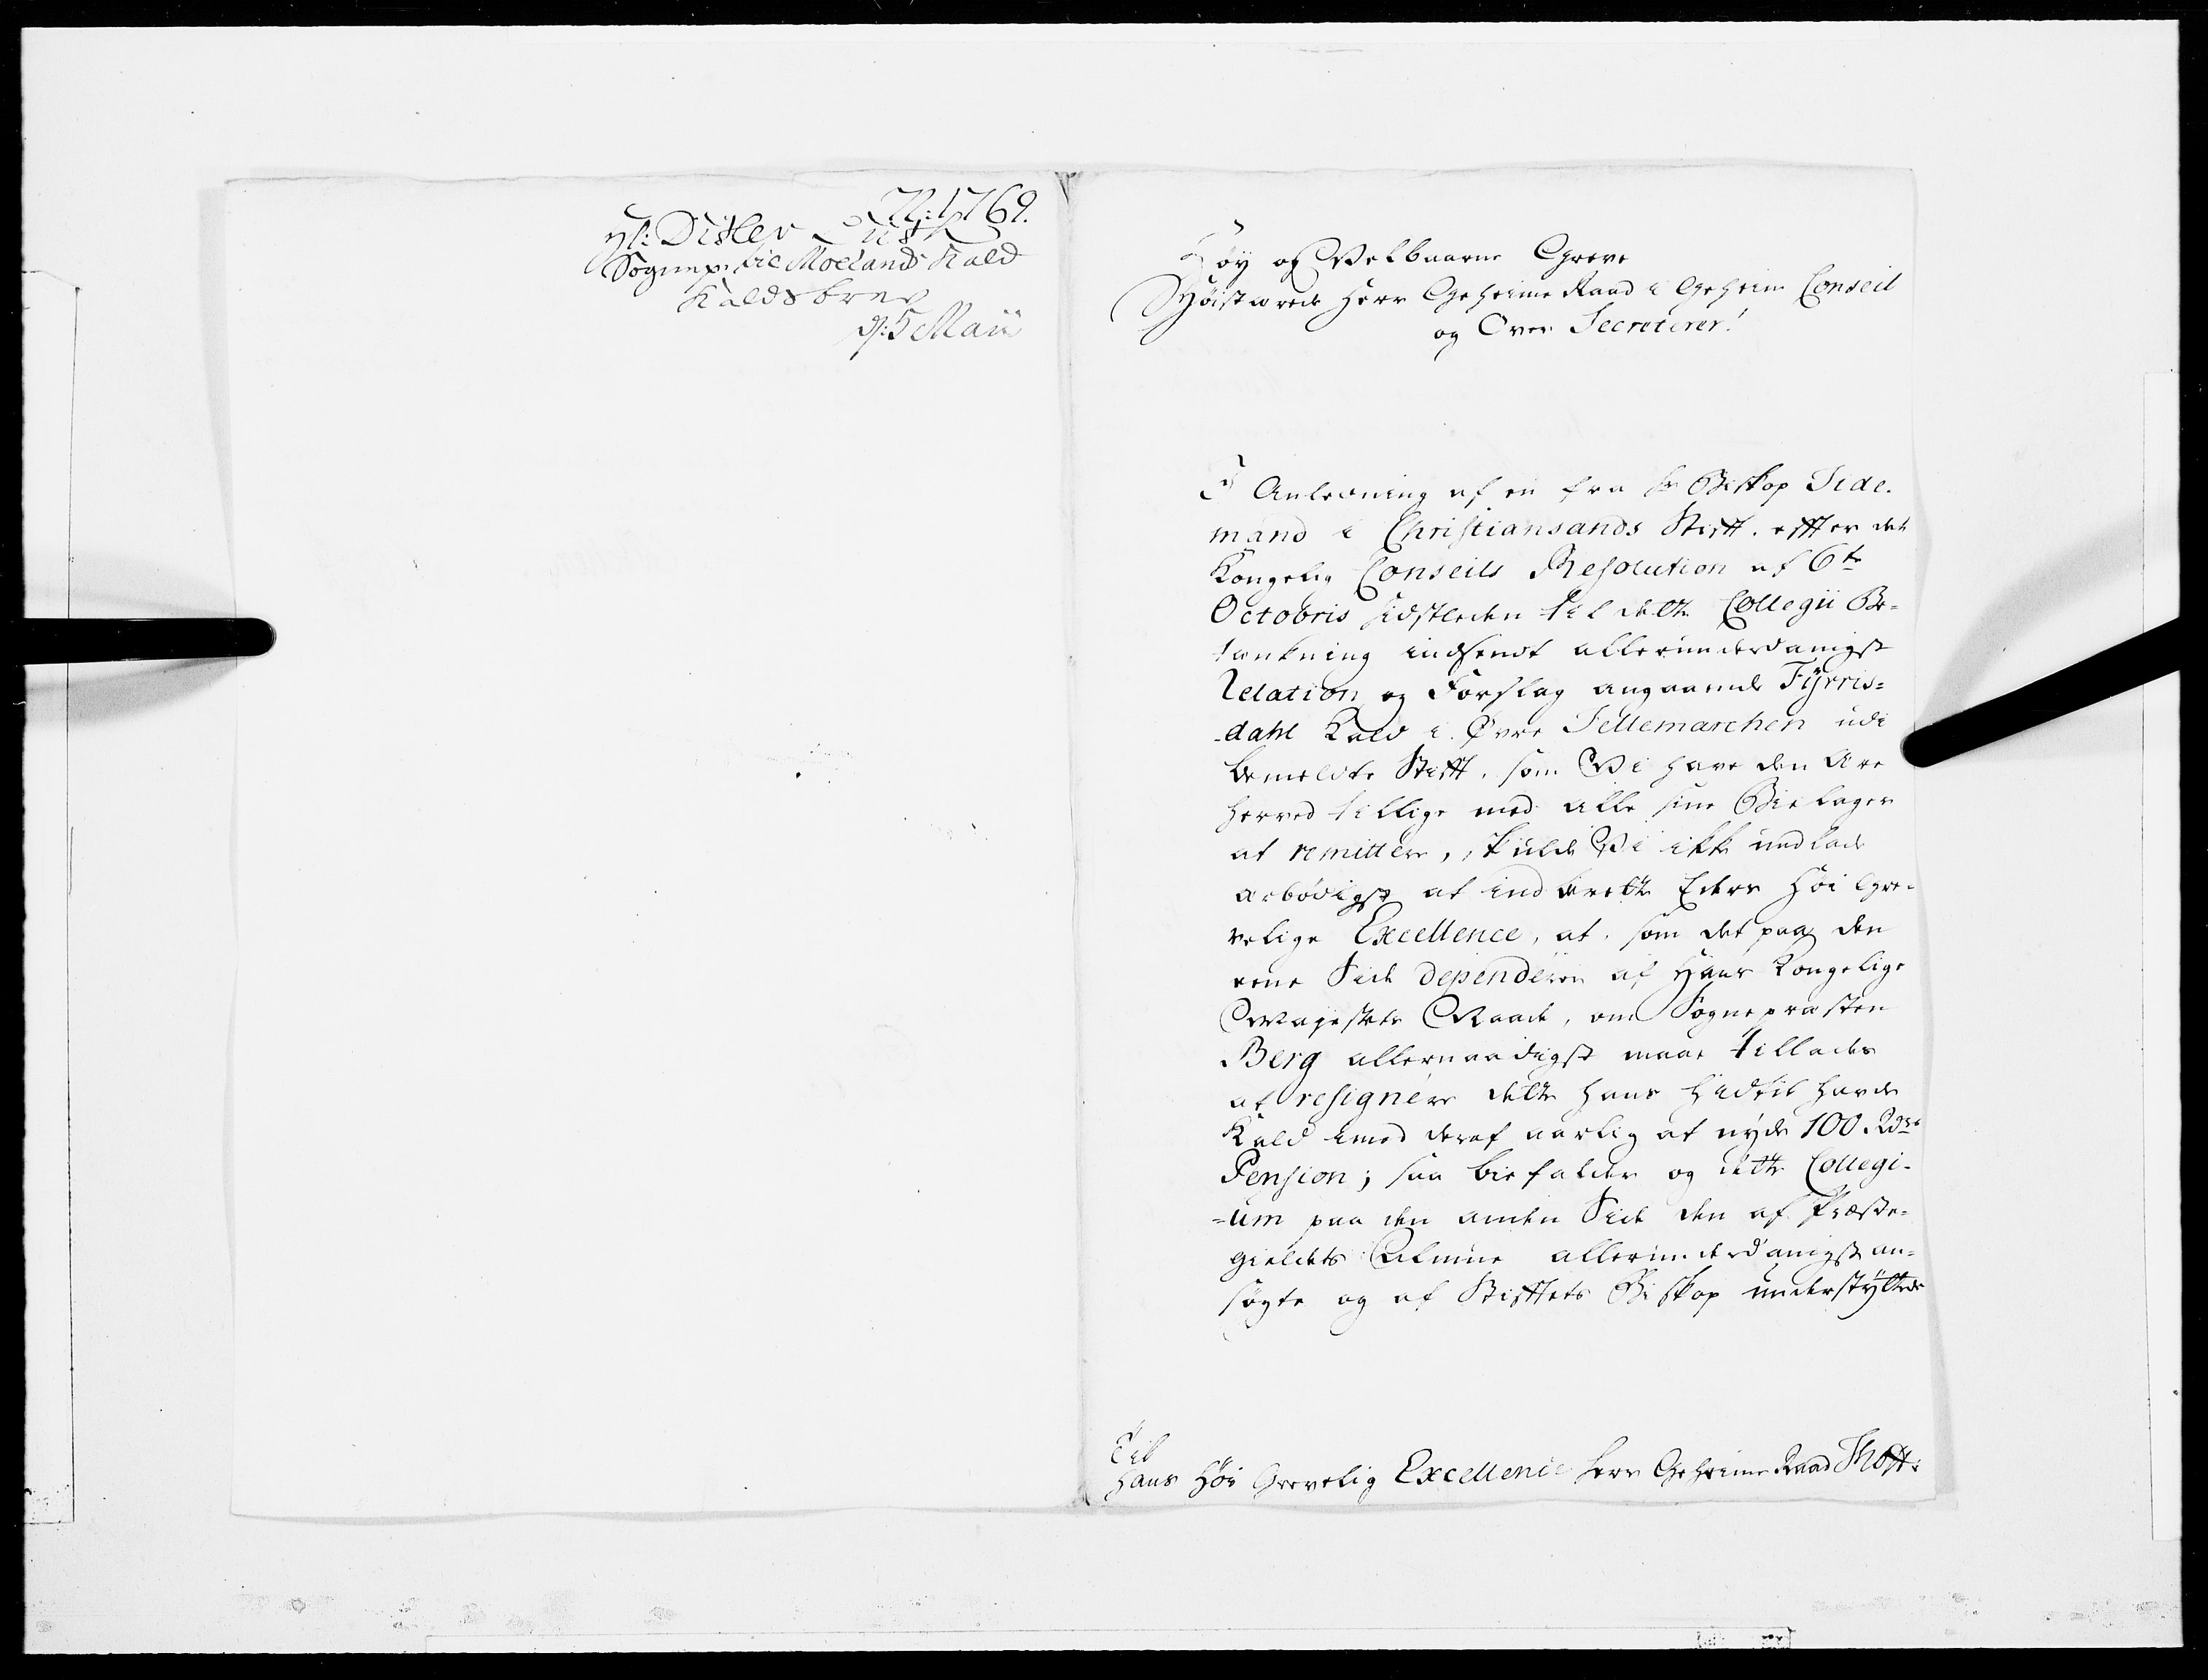 N: 1769.
Hr: Ditlev
Sognepr: til Moelands Kald
Kaldsbrev
d: 5 Maii
Høy og Velbaarne Greve
Høistærede Herr Geheime Raad i Geheime Conseil
og Over Secreterer!
I Anledning af en fra Hr Biskop Tide-
mand i Christiansands Stift, effter det
Kongelig Conseils Resolution af 6te
Octobris sidstleden til dette Collegii Be-
tænkning indsendt allerunderdanigst
Relation og Forslag angaaende Fyrris-
dahl Kald i Øvre Tellemarchen udi
bemeldte Stift, som Vi have den Ære
herved tillige med alle sine Bielager
at remittere, skulde Vi ikke undlade
ærbødigst at indberette Eders Høi Gre-
velige Excellence, at, som det paa den
eene Side dependerer af Hans Kongelige
Majestets Naade, om Sognepræsten
Berg allernaadigst maae tillades
at resignere dette hans hidtil havde
Kald imod deraf aarlig at nyde 100 Rdrs
Pension; saa biefalder og dette Collegi-
um paa den anden Side den af Præste-
gieldets Almue allerunderdanigst an-
søgte og af Stiftets Biskop understøttede
Til
Hans Høi Grevelig Excellence Herr Geheime Raad Thott.